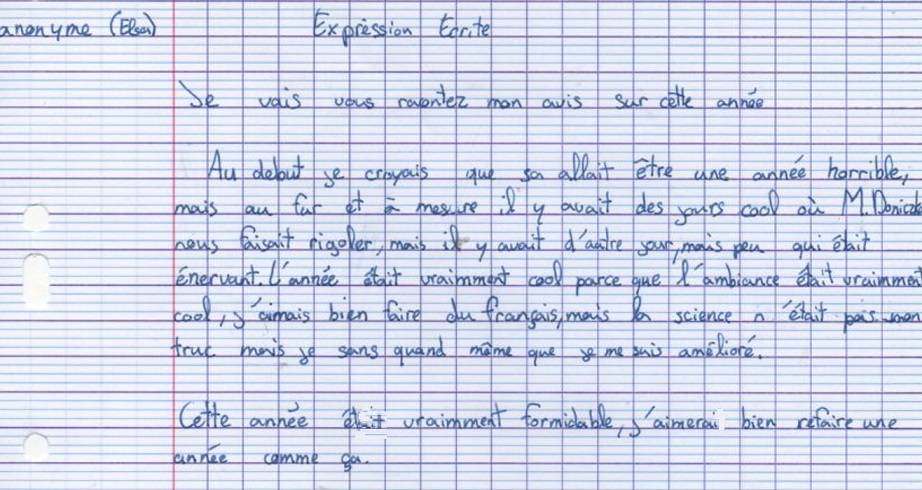 anonyme (Elsa) Expression Ecrite
Je vais vous racontez mon avis sur cette année
Au debut je croyais que sa allait être une année horrible,
mais au fur et à mesure il y avait des jours cool où M. Doniczka
nous faisait rigoler, mais il y avait d'autre jour, mais peu qui était
énervant. L'année était vraimment cool parce que l'ambiance était vraimment
cool, j'aimais bien faire du français, mais la science n'était pas mon
truc mais je sans quand même que je me suis amélioré.
Cette année était vraimment formidable, j'aimerai bien refaire une
année comme ça.